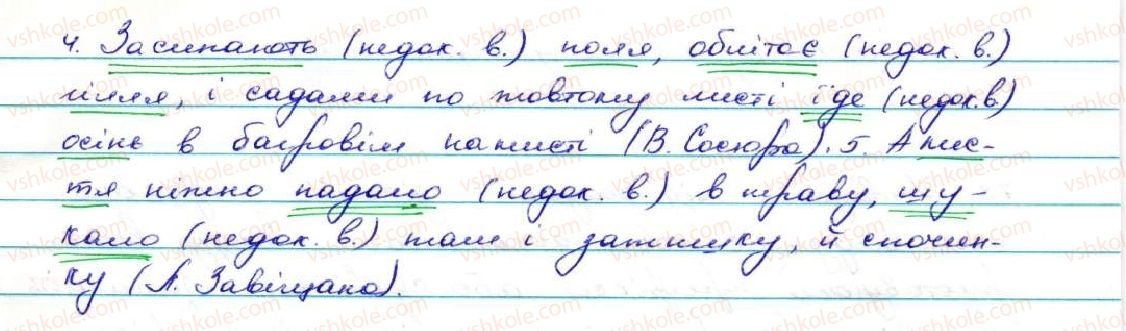 4. Засипають (недок. в.) поля, облітає (недок. в.)
гілля, і садами по жовтому листі їде (недок. в.)
осінь в багровім намисті (В. Сосюра). 5. А лис-
тя ніжно падало (недок. в.) в траву, шу-
кало (недок. в.) там і затишку, й спочин-
ку (А. Завіщана).